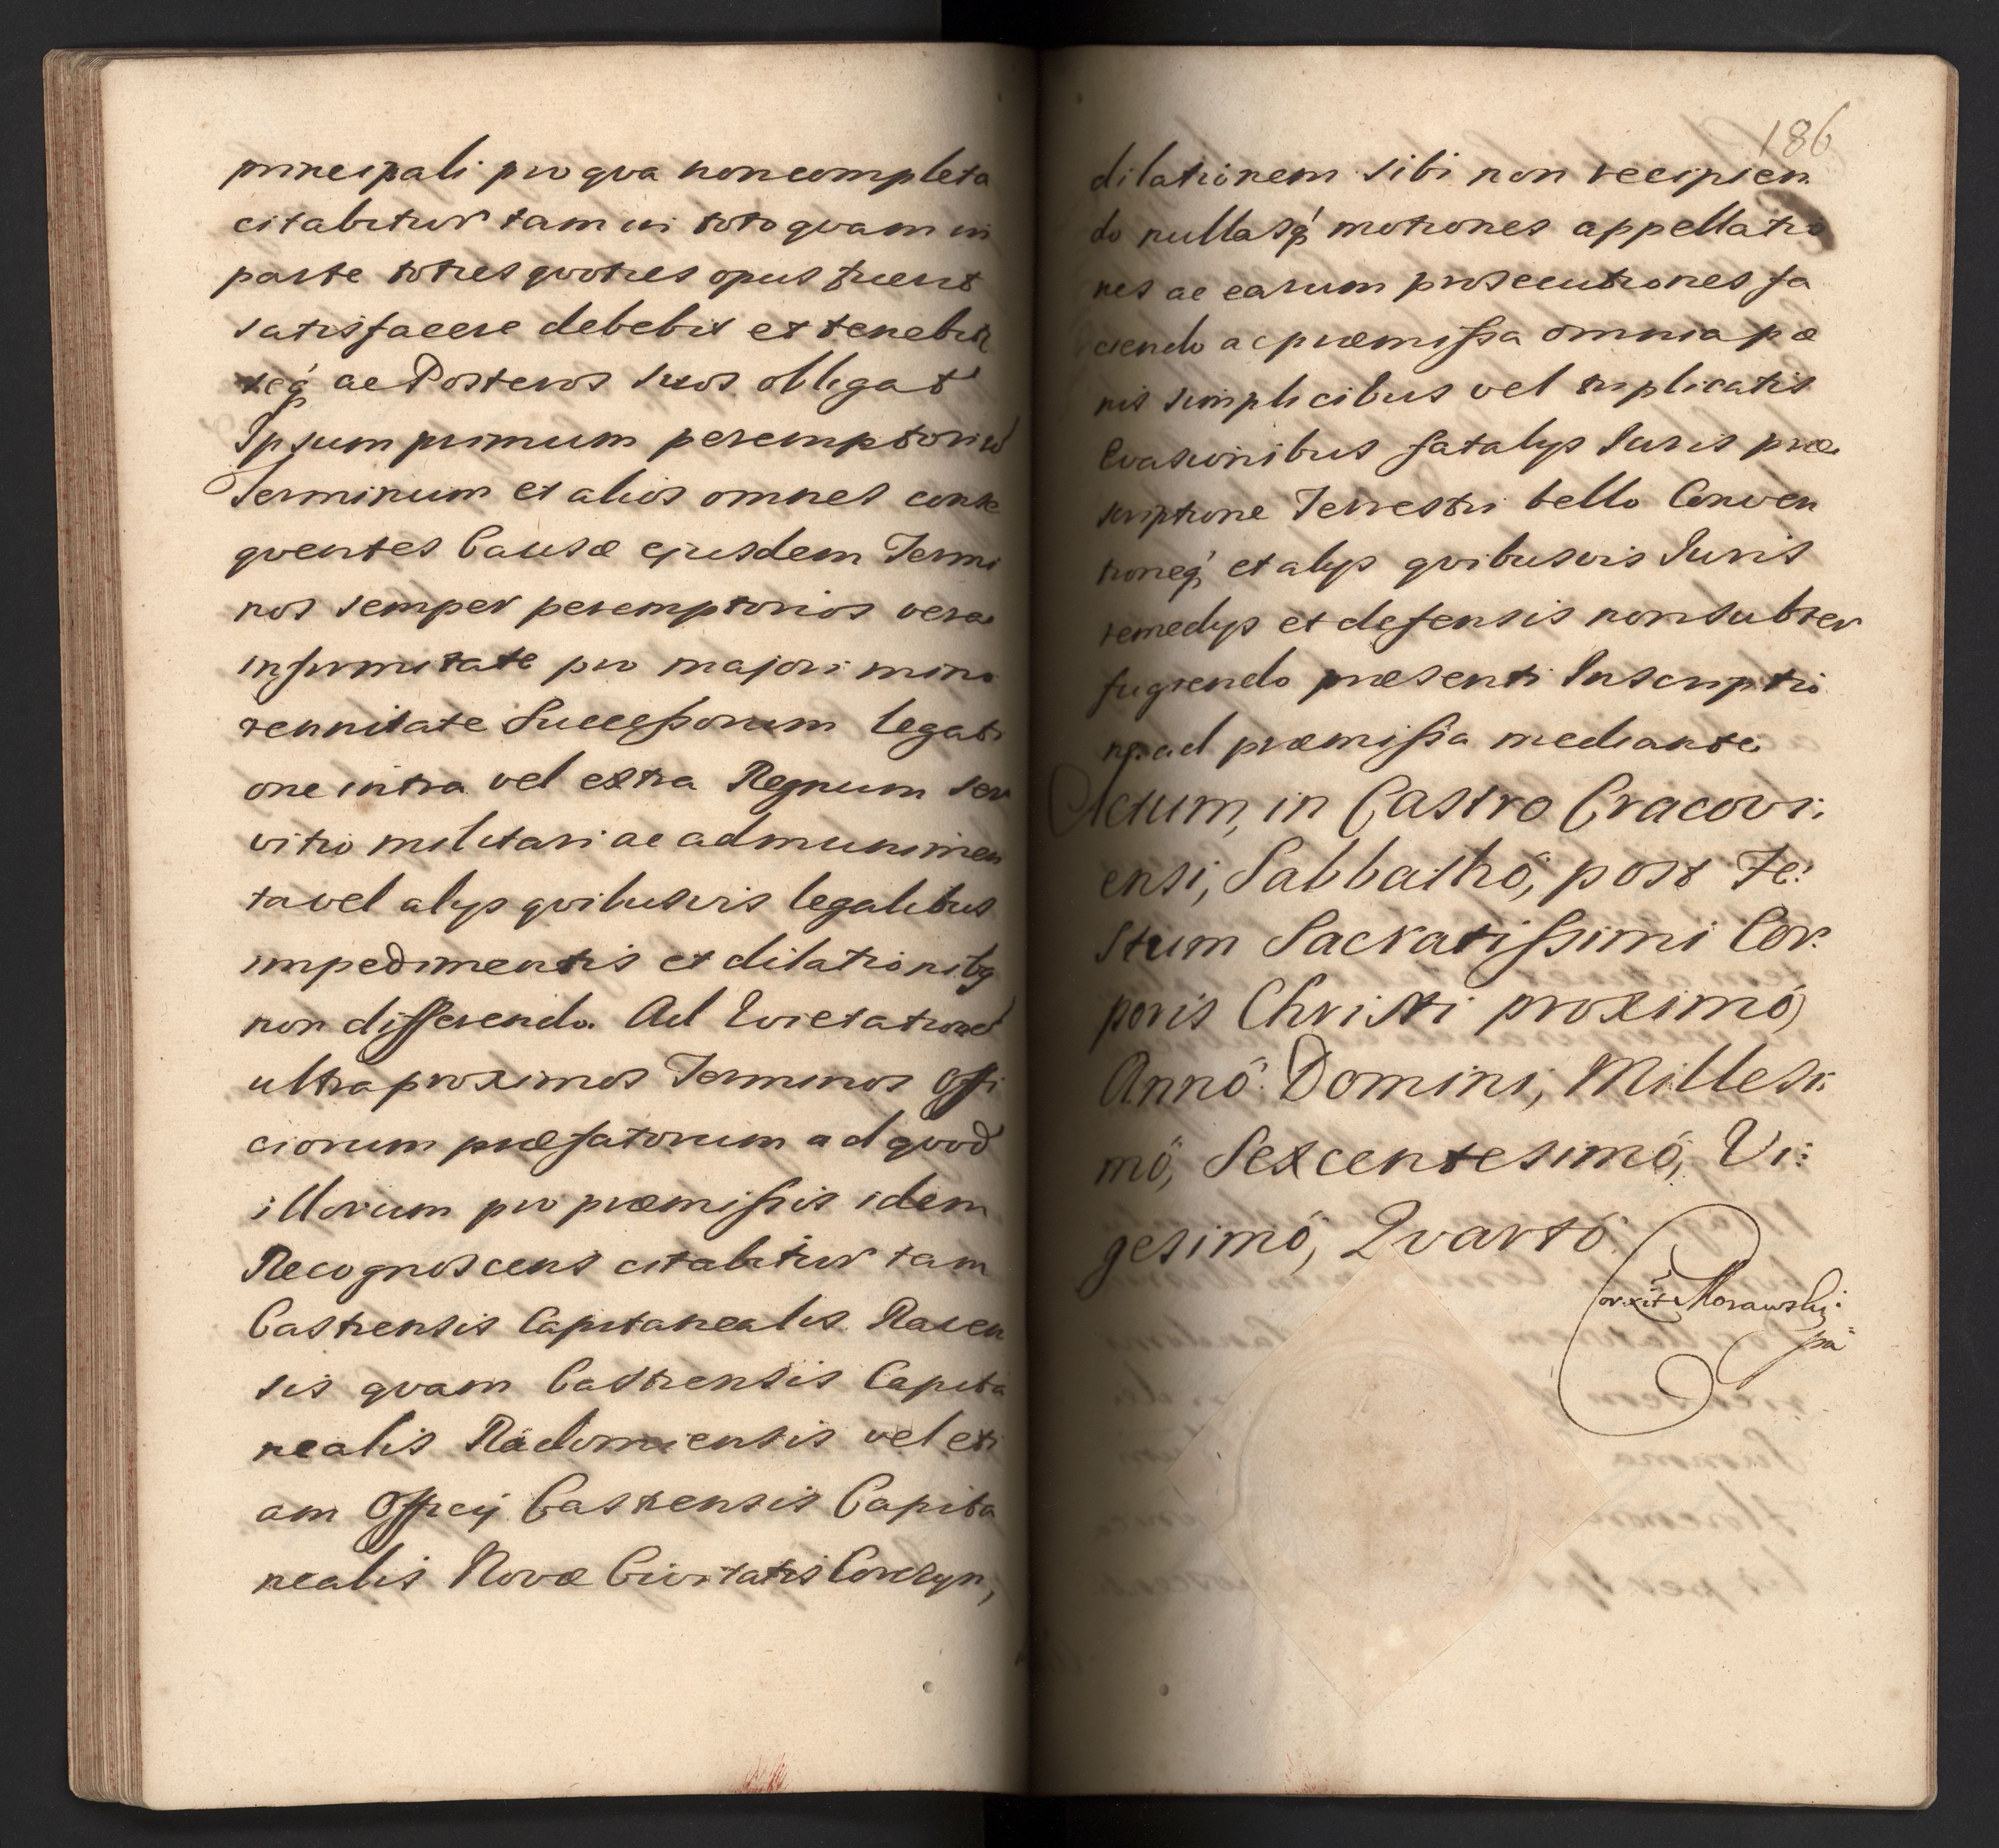 principali pro qva non completa
citabitur tam in toto qvam in
parte toties qvoties opus fuerit
satisfacere debebit et tenebit
seq́ ac Posteros suos obligat
Ipsum primum peremptoriū
Terminum et alios omnes conse
qventes Causæ ejusdem Termi
nos semper peremptorios vera
infirmitate pro majori mino
rennitate Successorum legati
one intra vel extra Regnum ser
vitio militari ac ad munimen
ta vel alys qvibusvis legalibus
impedimentis et dilationibq
non differendo. Ad Evictationē
ultra proximos Terminos Offi
ciorum præfatorum ad qvod
illorum pro præmissis idem
Recognoscens citabitur tam
Castrensis Capitanealis Raven
sis qvam Castrensis Capita
nealis Radomiensis vel eti
am Officij Castrensis Capita
nealis Novæ Civitatis Corczyn,
186
dilationem sibi non recipien
do nullasq́ motiones appellatio
nes ac earum prosecutiones fa
ciendo ac præmissa omnia pæ
nis simplicibus vel triplicatis
Evasionibus fatalys Iuris præ
scriptione Terrestri bello Conven
tioneq́ et alys qvibusvis Iuris
remedys et defensis non subter
fugiendo præsenti Inscriptio
ne ad præmissa mediante
Actum, in Castro Cracovi:
ensi, Sabbathô, post Fe:
stum Sacratissimi Cor:
poris Christi proximô,
Annô: Domini, Millesi:
mô, Sexcentesimô, Vi:
gesimô, Qvartô.
Corrxit Morawski